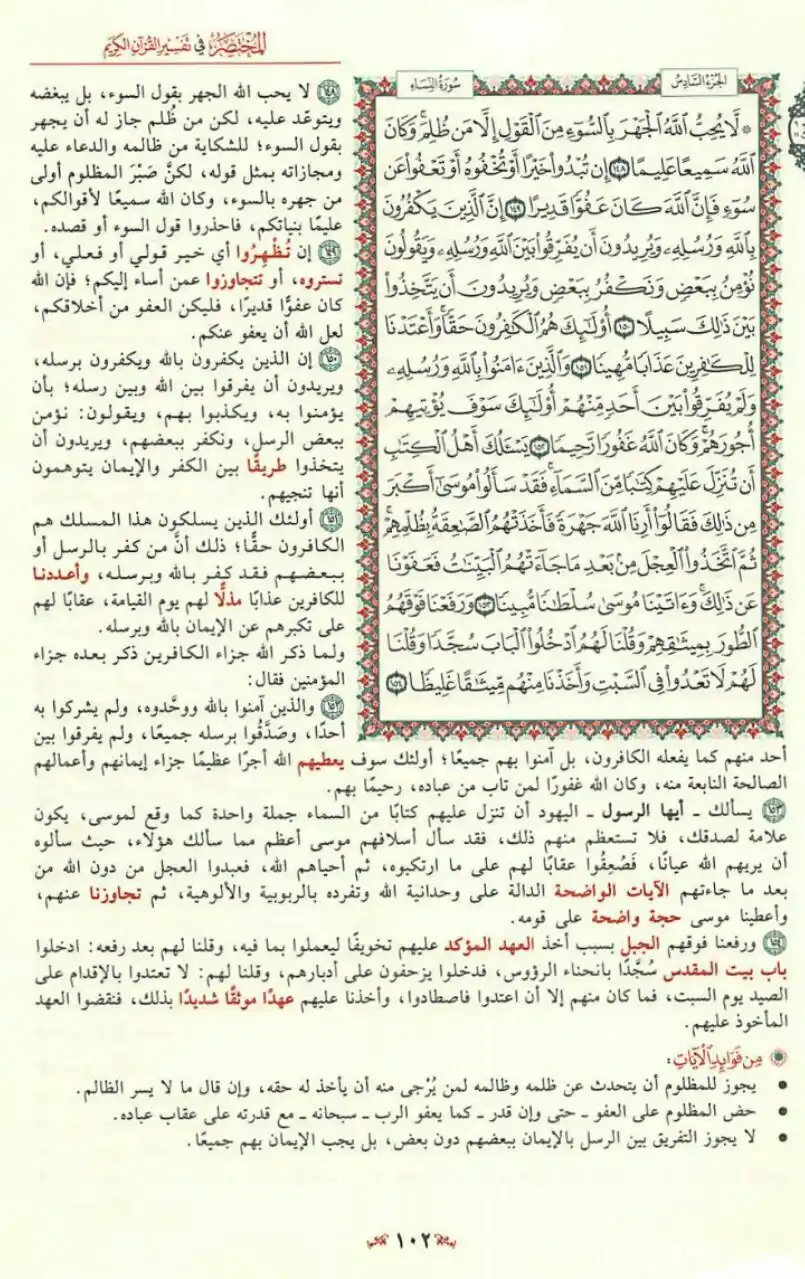 المختصر في تفسير القرآن الكريم
الجزء السادس
سورة النساء
۞ لَّا يُحِبُّ ٱللَّهُ ٱلْجَهْرَ بِٱلسُّوٓءِ مِنَ ٱلْقَوْلِ إِلَّا مَن ظُلِمَۚ وَكَانَ
ٱللَّهُ سَمِيعًا عَلِيمًا ١٤٨ إِن تُبْدُوا۟ خَيْرًا أَوْ تُخْفُوهُ أَوْ تَعْفُوا۟ عَن
سُوٓءٍ فَإِنَّ ٱللَّهَ كَانَ عَفُوًّا قَدِيرًا ١٤٩ إِنَّ ٱلَّذِينَ يَكْفُرُونَ
بِٱللَّهِ وَرُسُلِهِۦ وَيُرِيدُونَ أَن يُفَرِّقُوا۟ بَيْنَ ٱللَّهِ وَرُسُلِهِۦ وَيَقُولُونَ
نُؤْمِنُ بِبَعْضٍ وَنَكْفُرُ بِبَعْضٍ وَيُرِيدُونَ أَن يَتَّخِذُوا۟
بَيْنَ ذَٰلِكَ سَبِيلًا ١٥٠ أُو۟لَٰٓئِكَ هُمُ ٱلْكَٰفِرُونَ حَقًّاۚ وَأَعْتَدْنَا
لِلْكَٰفِرِينَ عَذَابًا مُّهِينًا ١٥١ وَٱلَّذِينَ ءَامَنُوا۟ بِٱللَّهِ وَرُسُلِهِۦ
وَلَمْ يُفَرِّقُوا۟ بَيْنَ أَحَدٍ مِّنْهُمْ أُو۟لَٰٓئِكَ سَوْفَ يُؤْتِيهِمْ
أُجُورَهُمْۚ وَكَانَ ٱللَّهُ غَفُورًا رَّحِيمًا ١٥٢ يَسْـَٔلُكَ أَهْلُ ٱلْكِتَٰبِ
أَن تُنَزِّلَ عَلَيْهِمْ كِتَٰبًا مِّنَ ٱلسَّمَآءِۚ فَقَدْ سَأَلُوا۟ مُوسَىٰٓ أَكْبَرَ
مِن ذَٰلِكَ فَقَالُوٓا۟ أَرِنَا ٱللَّهَ جَهْرَةً فَأَخَذَتْهُمُ ٱلصَّٰعِقَةُ بِظُلْمِهِمْۚ
ثُمَّ ٱتَّخَذُوا۟ ٱلْعِجْلَ مِنۢ بَعْدِ مَا جَآءَتْهُمُ ٱلْبَيِّنَٰتُ فَعَفَوْنَا
عَن ذَٰلِكَۚ وَءَاتَيْنَا مُوسَىٰ سُلْطَٰنًا مُّبِينًا ١٥٣ وَرَفَعْنَا فَوْقَهُمُ
ٱلطُّورَ بِمِيثَٰقِهِمْ وَقُلْنَا لَهُمُ ٱدْخُلُوا۟ ٱلْبَابَ سُجَّدًا وَقُلْنَا
لَهُمْ لَا تَعْدُوا۟ فِى ٱلسَّبْتِ وَأَخَذْنَا مِنْهُم مِّيثَٰقًا غَلِيظًا ١٥٤
١٤٨ لا يحب الله الجهر بقول السوء، بل يبغضه
ويتوعّد عليه، لكن من ظُلم جاز له أن يجهر
بقول السوء؛ للشكاية من ظالمه والدعاء عليه
ومجازاته بمثل قوله، لكنَّ صَبْرَ المظلوم أولى
من جهره بالسوء، وكان الله سميعًا لأقوالكم،
عليمًا بنياتكم، فاحذروا قول السوء أو قصده.
١٤٩ إن تُظْهِرُوا أي خير قولي أو فعلي، أو
تستروه، أو تتجاوزوا عمن أساء إليكم؛ فإن الله
كان عفوًّا قديرًا، فليكن العفو من أخلاقكم،
لعل الله أن يعفو عنكم.
١٥٠ إن الذين يكفرون بالله ويكفرون برسله،
ويريدون أن يفرقوا بين الله وبين رسله؛ بأن
يؤمنوا به، ويكذبوا بهم، ويقولون: نؤمن
ببعض الرسل، ونكفر ببعضهم، ويريدون أن
يتخذوا طريقًا بين الكفر والإيمان يتوهمون
أنها تنجيهم.
١٥١ أولئك الذين يسلكون هذا المسلك هم
الكافرون حقًّا؛ ذلك أنَّ من كفر بالرسل أو
ببعضهم فقد كفر بالله وبرسله، وأعددنا
للكافرين عذابًا مذلًّا لهم يوم القيامة، عقابًا لهم
على تكبرهم عن الإيمان بالله وبرسله.
ولما ذكر الله جزاء الكافرين ذكر بعده جزاء
المؤمنين فقال:
١٥٢ والذين آمنوا بالله ووحَّدوه، ولم يشركوا به
أحدًا، وصَدَّقُوا برسله جميعًا، ولم يفرقوا بين
أحد منهم كما يفعله الكافرون، بل آمنوا بهم جميعًا؛ أولئك سوف يعطيهم الله أجرًا عظيمًا جزاء إيمانهم وأعمالهم
الصالحة النابعة منه، وكان الله غفورًا لمن تاب من عباده، رحيمًا بهم.
١٥٣ يسألك ـ أيها الرسول ـ اليهود أن تنزل عليهم كتابًا من السماء جملة واحدة كما وقع لموسى، يكون
علامة لصدقك، فلا تستعظم منهم ذلك، فقد سأل أسلافهم موسى أعظم مما سألك هؤلاء، حيث سألوه
أن يريهم الله عيانًا، فَصُعِقُوا عقابًا لهم على ما ارتكبوه، ثم أحياهم الله، فعبدوا العجل من دون الله من
بعد ما جاءتهم الآيات الواضحة الدالة على وحدانية الله وتفرده بالربوبية والألوهية، ثم تجاوزنا عنهم،
وأعطينا موسى حجة واضحة على قومه.
١٥٤ ورفعنا فوقهم الجبل بسبب أخذ العهد المؤكد عليهم تخويفًا ليعملوا بما فيه، وقلنا لهم بعد رفعه: ادخلوا
باب بيت المقدس سُجَّدًا بانحناء الرؤوس، فدخلوا يزحفون على أدبارهم، وقلنا لهم: لا تعتدوا بالإقدام على
الصيد يوم السبت، فما كان منهم إلا أن اعتدوا فاصطادوا، وأخذنا عليهم عهدًا موثقًا شديدًا بذلك، فنقضوا العهد
المأخوذ عليهم.
من فوائد الآيات:
• يجوز للمظلوم أن يتحدث عن ظلمه وظالمه لمن يُرْجى منه أن يأخذ له حقه، وإن قال ما لا يسر الظالم.
• حض المظلوم على العفو ـ حتى وإن قدر ـ كما يعفو الرب ـ سبحانه ـ مع قدرته على عقاب عباده.
• لا يجوز التفريق بين الرسل بالإيمان ببعضهم دون بعض، بل يجب الإيمان بهم جميعًا.
١٠٢